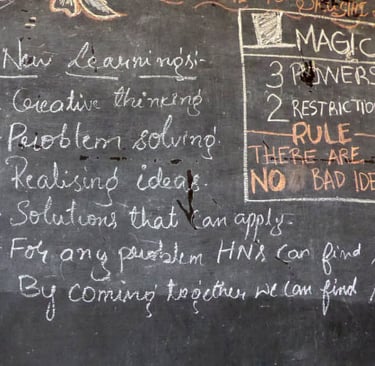 New Learnings:-
Creative thinking
Problem solving.
Realising ideas.
Solutions that can apply.
For any problem HNs can find
By coming together we can find
MAGIC
3 POWERS
2 RESTRICTION
RULE
THERE ARE
NO BAD IDE